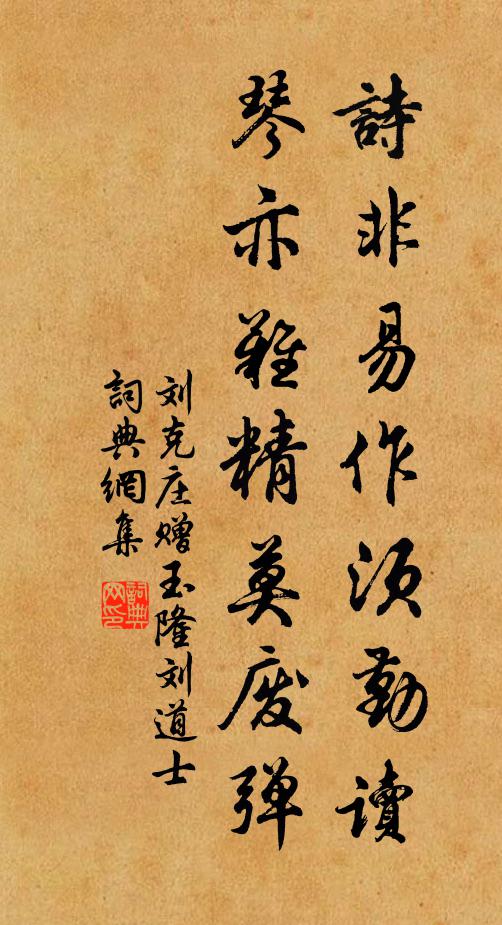 詩非易作須勤讀
琴亦難精莫廢彈
刘克庄赠玉隆刘道士
詞典網集
詞典
网印